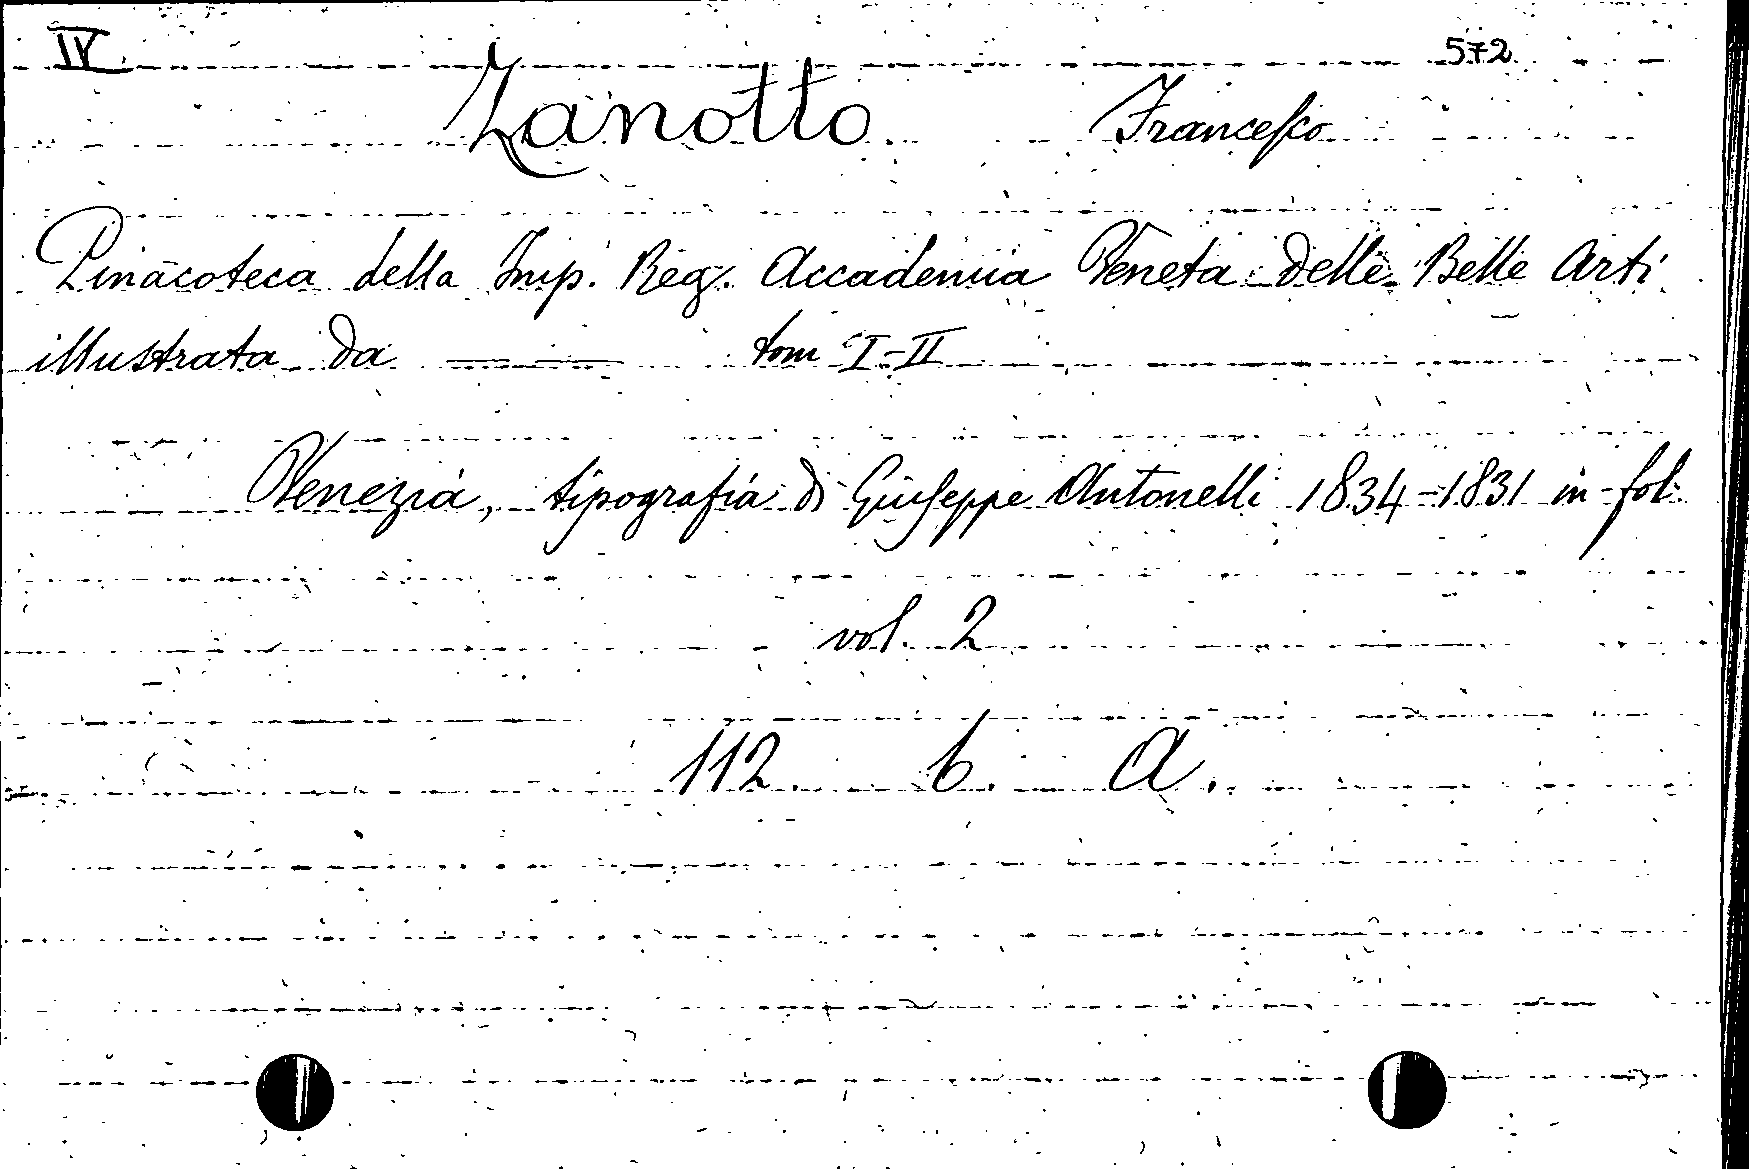 IV 572
Zanotto Franceſco
Pinacoteca della Imp. Reg. Accademia Veneta delle Belle Arti
illustrata da —— tom I-II
Venezia, tipografia di Giuſeppe Antonelli 1834-1831 in fol.
vol. 2
112. b. A.